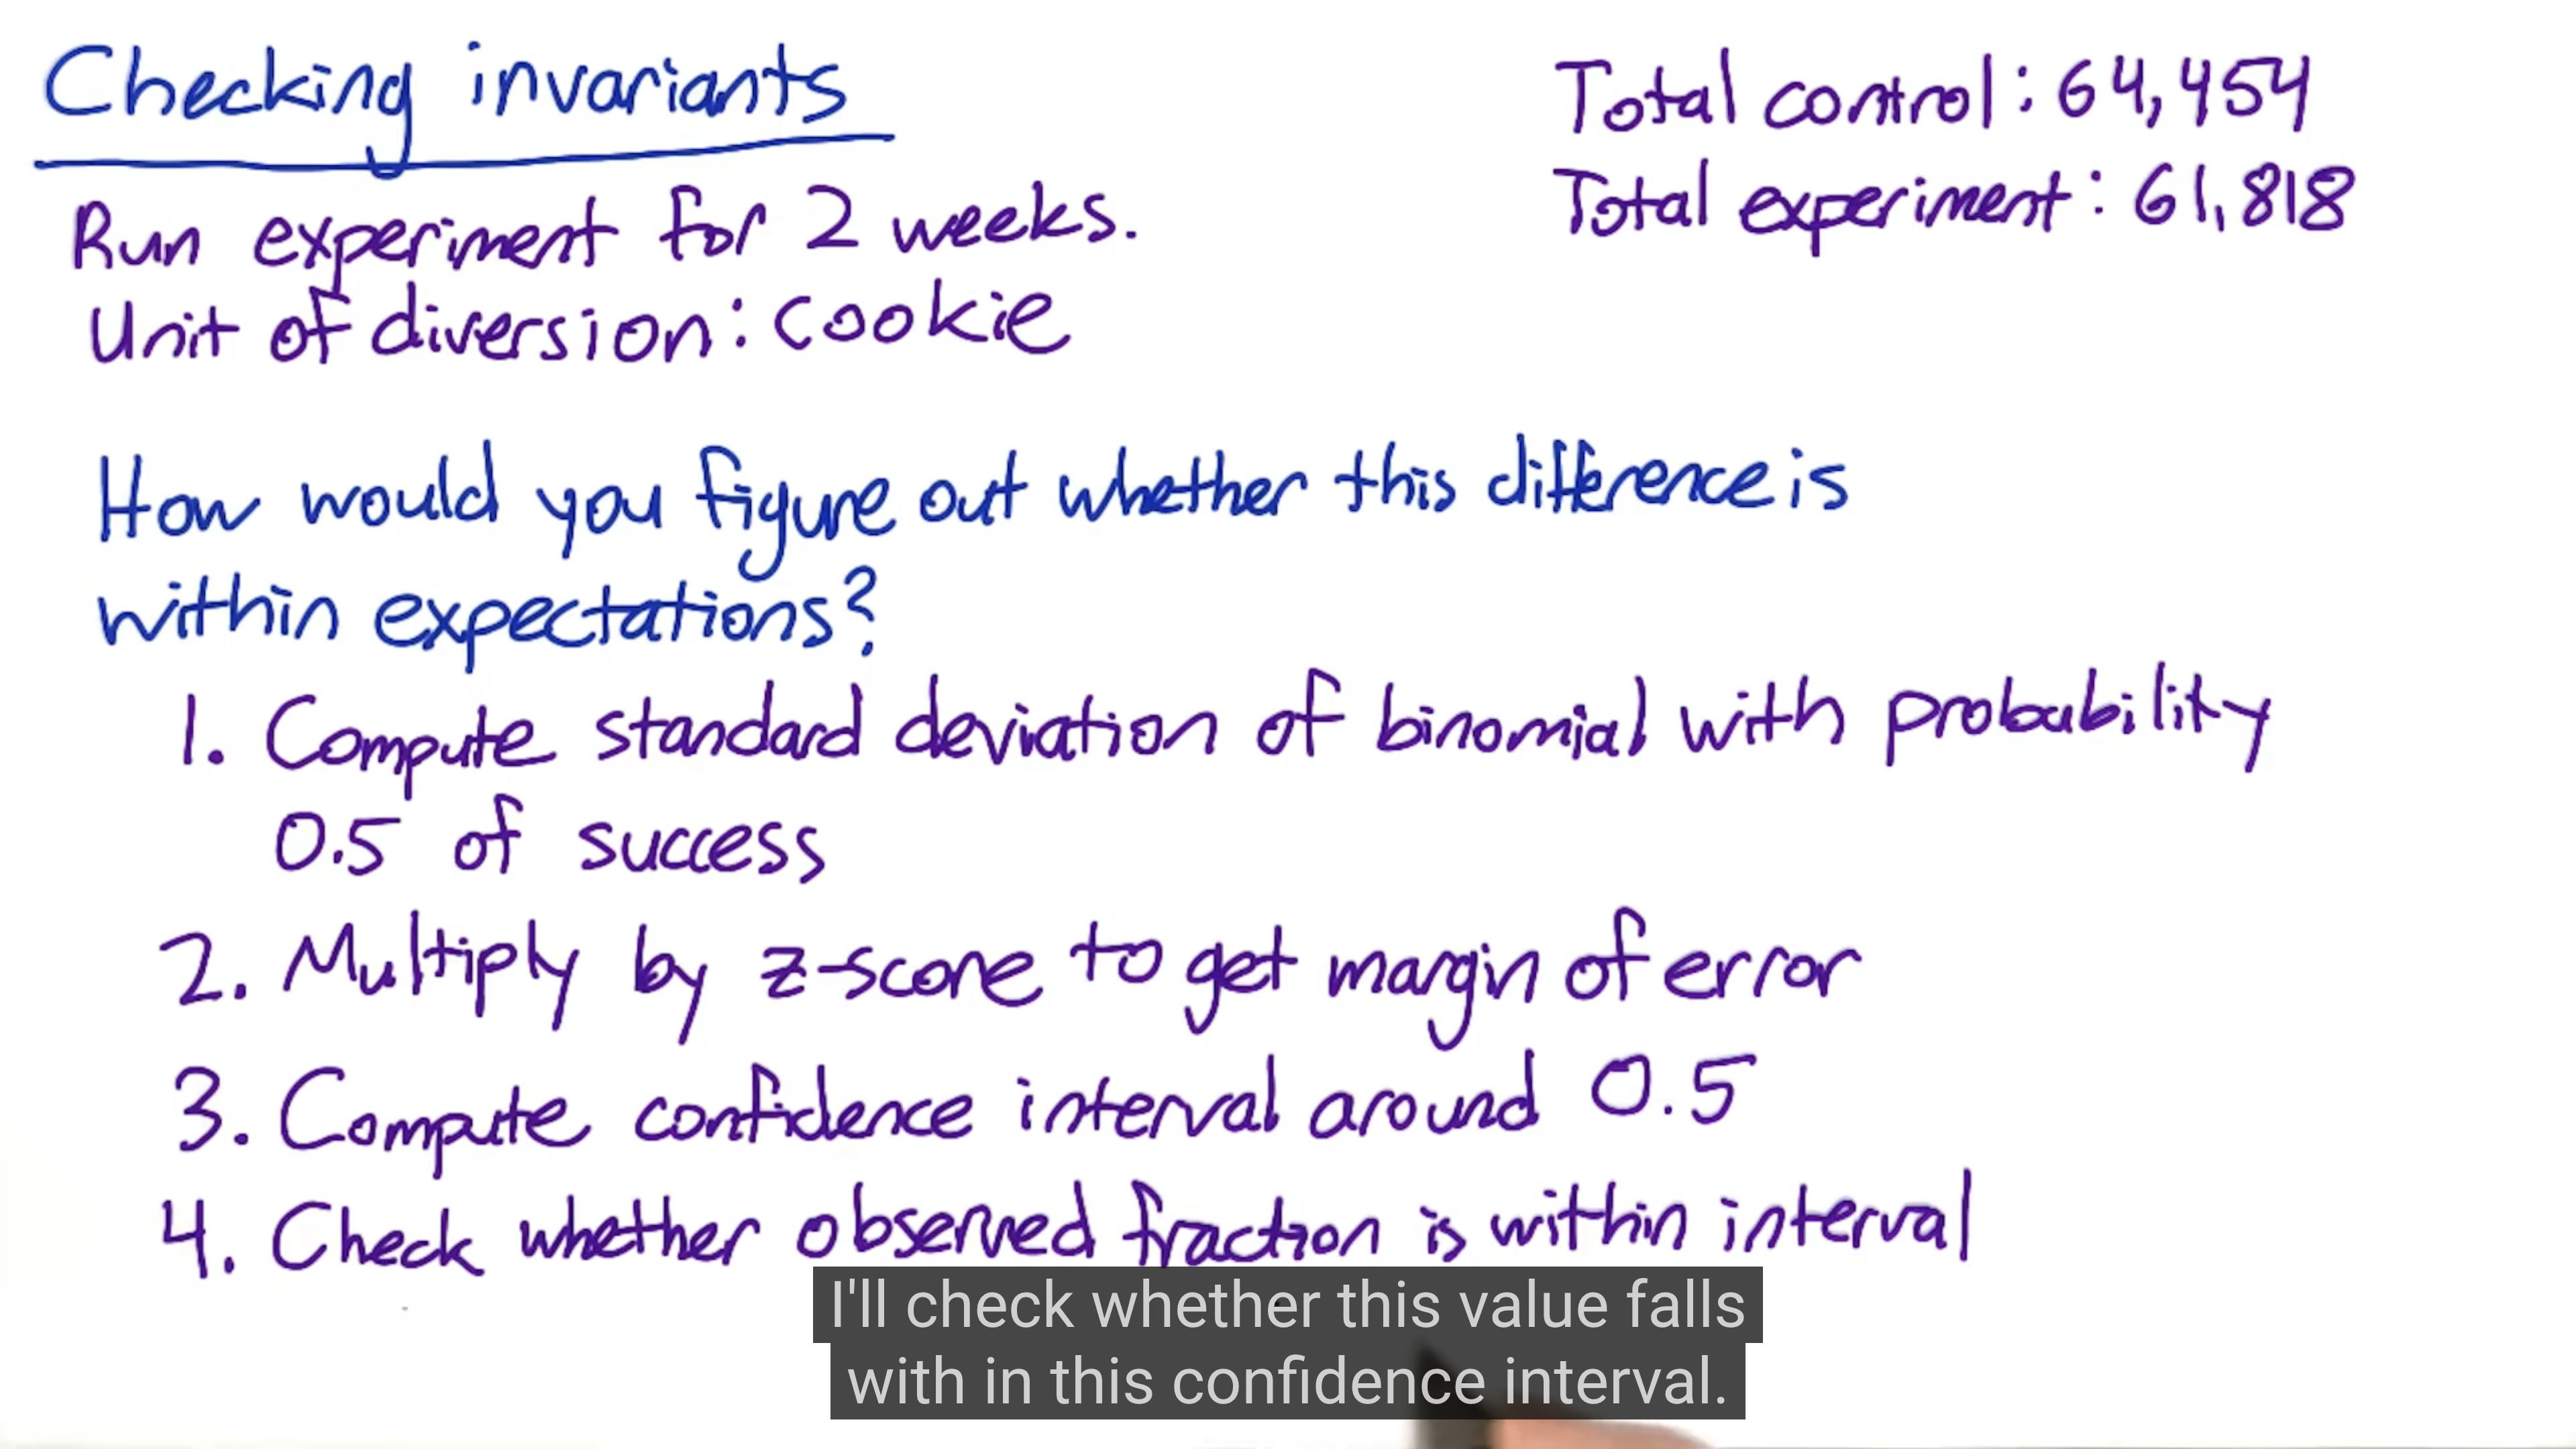 Checking invariants
Total control: 64,454
Total experiment: 61,818
Run experiment for 2 weeks.
Unit of diversion: cookie
How would you figure out whether this difference is
within expectations?
1. Compute standard deviation of binomial with probability
0.5 of success
2. Multiply by z-score to get margin of error
3. Compute confidence interval around 0.5
4. Check whether observed fraction is within interval
I'll check whether this value falls
with in this confidence interval.